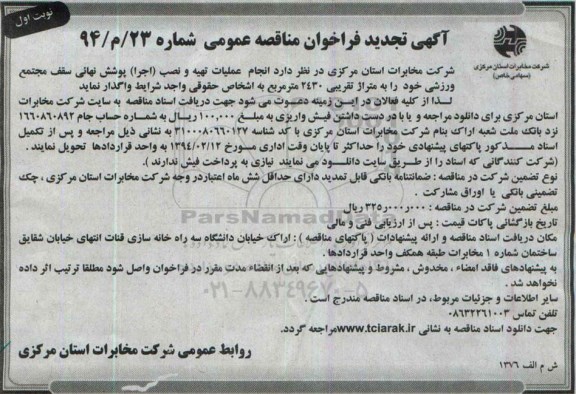 نوبت اول
آگهی تجدید فراخوان مناقصه عمومی شماره ۲۳/م/۹۴
شرکت مخابرات استان مرکزی
(سهامی خاص)
شرکت مخابرات استان مرکزی در نظر دارد انجام عملیات تهیه و نصب (اجرا) پوشش نهائی سقف مجتمع
ورزشی خود را به متراژ تقریبی ۲۴۳۰ مترمربع به اشخاص حقوقی واجد شرایط واگذار نماید
لذا از کلیه فعالان در این زمینه دعوت می شود جهت دریافت اسناد مناقصه به سایت شرکت مخابرات
استان مرکزی برای دانلود مراجعه و یا با در دست داشتن فیش واریزی به مبلغ ۱۰۰,۰۰۰ ریال به شماره حساب جام ۱۶۶۰۸۶۰۸۹۲
نزد بانک ملت شعبه اراک بنام شرکت مخابرات استان مرکزی با کد شناسه ۳۱۰۰۰۸۰۶۶۰۱۲۷ به نشانی ذیل مراجعه و پس از تکمیل
اسناد مذکور پاکتهای پیشنهادی خود را حداکثر تا پایان وقت اداری مورخ ۱۳۹۴/۰۲/۱۲ به واحد قراردادها تحویل نمایند .
(شرکت کنندگانی که اسناد را از طریق سایت دانلود می نمایند نیازی به پرداخت فیش ندارند ).
نوع تضمین شرکت در مناقصه : ضمانتنامه بانکی قابل تمدید دارای حداقل شش ماه اعتبار در وجه شرکت مخابرات استان مرکزی ، چک
تضمینی بانکی یا اوراق مشارکت .
مبلغ تضمین شرکت در مناقصه : ۳۲۵ر۰۰۰ر۰۰۰ ریال
تاریخ بازگشائی پاکات قیمت : پس از ارزیابی فنی و مالی
مکان دریافت اسناد مناقصه و ارائه پیشنهادات ( پاکتهای مناقصه ) : اراک خیابان دانشگاه سه راه خانه سازی قنات انتهای خیابان شقایق
ساختمان شماره ۱ مخابرات طبقه همکف واحد قراردادها .
به پیشنهادهای فاقد امضاء ، مخدوش ، مشروط و پیشنهادهایی که بعد از انقضاء مدت مقرر در فراخوان واصل شود مطلقا ترتیب اثر داده
نخواهد شد .
سایر اطلاعات و جزئیات مربوط، در اسناد مناقصه مندرج است .
تلفن تماس ۰۸۶۳۲۲۶۱۰۰۳
جهت دانلود اسناد مناقصه به نشانی www.tciarak.ir مراجعه گردد.
روابط عمومی شرکت مخابرات استان مرکزی
ش م الف ۱۳۷۶
ParsNamadData
۰۲۱-۸۸۳۴۹۶۷۰-۵